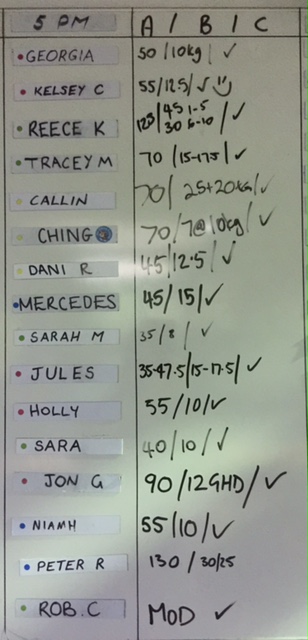 5 PM A / B / C
GEORGIA 50 / 10kg / ✓
KELSEY C 55/12.5/ ✓
REECE K 123 / 45 1-5 30 6-10 / ✓
TRACEY M 70 / 15-17.5 / ✓
CALLIN 70 / 25+20kg / ✓
CHING 70 / 7@10kg / ✓
DANI R 45 / 12.5 / ✓
MERCEDES 45 / 15 / ✓
SARAH M 35 / 8 / ✓
JULES 35-47.5 / 15-17.5 / ✓
HOLLY 55 / 10 / ✓
SARA 40 / 10 / ✓
JON G 90 / 12GHD / ✓
NIAMH 55 / 10 / ✓
PETER R 130 / 30/25
ROB.C MOD ✓